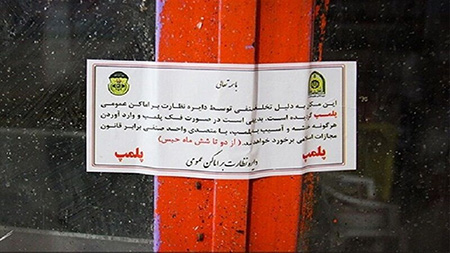 باسمه تعالی
این مکان به دلیل تخلف صنفی توسط دایره نظارت بر اماکن عمومی
پلمپ گردیده است. بدیهی است در صورت فک پلمپ و وارد آوردن
هرگونه خدشه و آسیب به پلمپ، با متصدی واحد صنفی برابر قانون
مجازات اسلامی برخورد خواهد شد. (از دو تا شش ماه حبس)
پلمپ دایره نظارت بر اماکن عمومی پلمپ